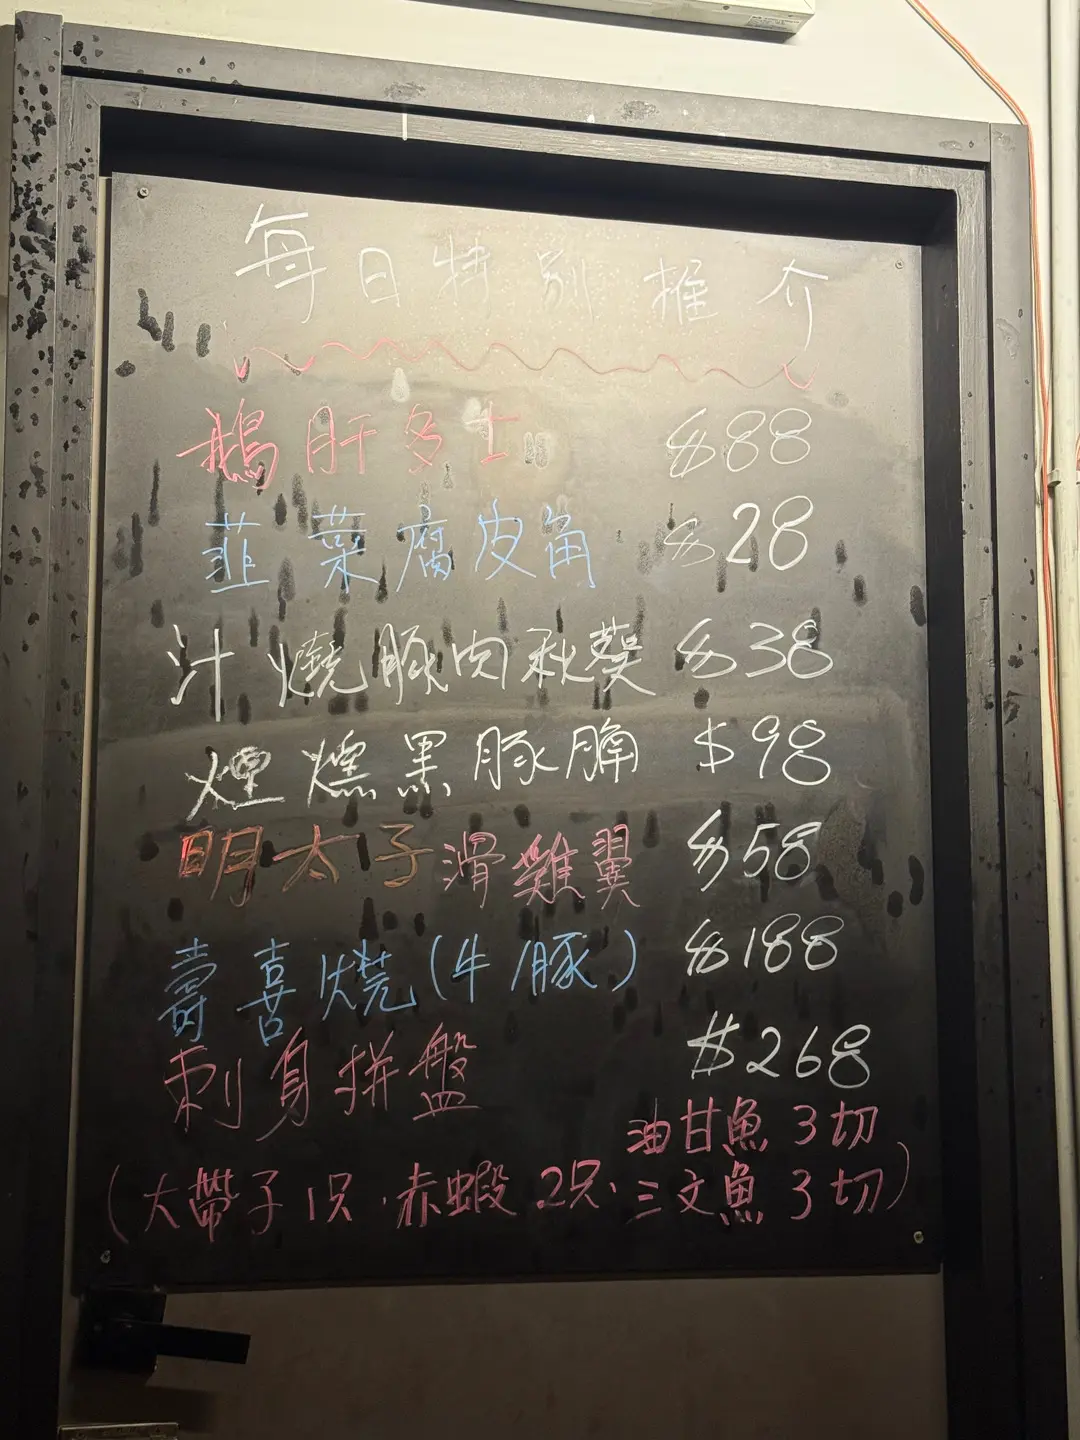 每日特別推介
鵝肝多士 $88
韮菜腐皮角 $28
汁燒豚肉秋葵 $38
煙燻黑豚腩 $98
明太子滑雞翼 $58
壽喜燒(牛/豚) $188
刺身拼盤 $268
油甘魚3切
(大帶子1只·赤蝦2只·三文魚3切)